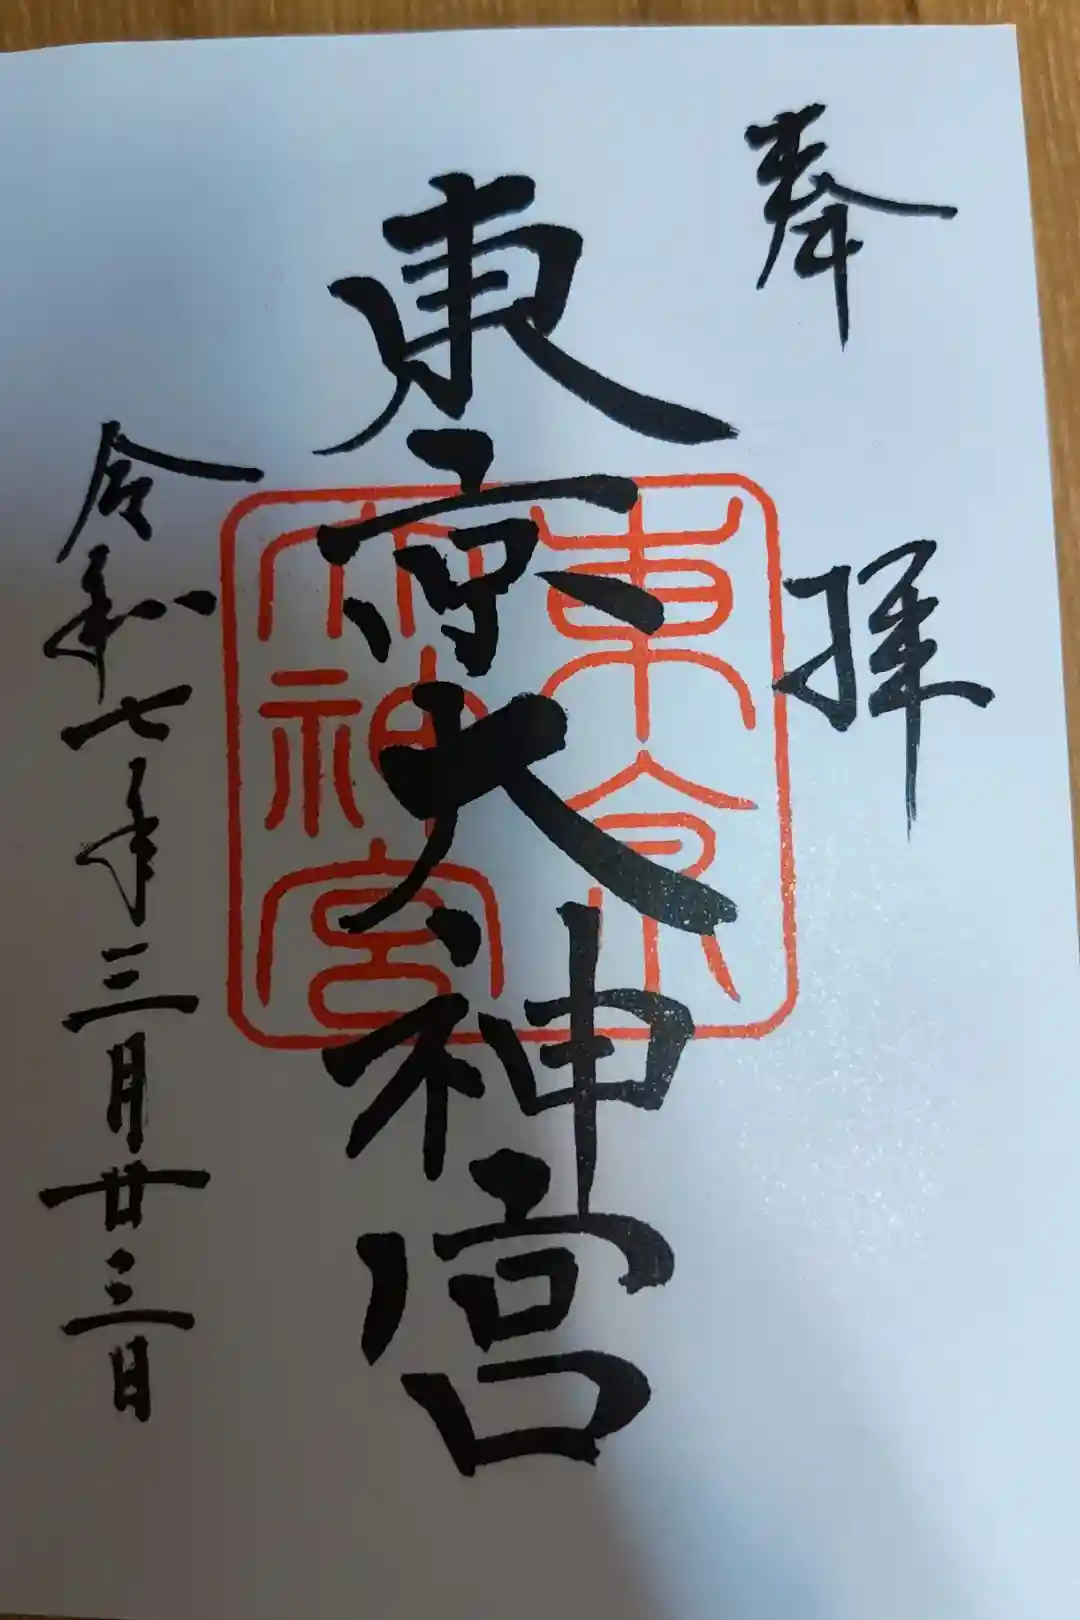 奉拝
東京大神宮
東京
大神宮
令和七年三月廿三日